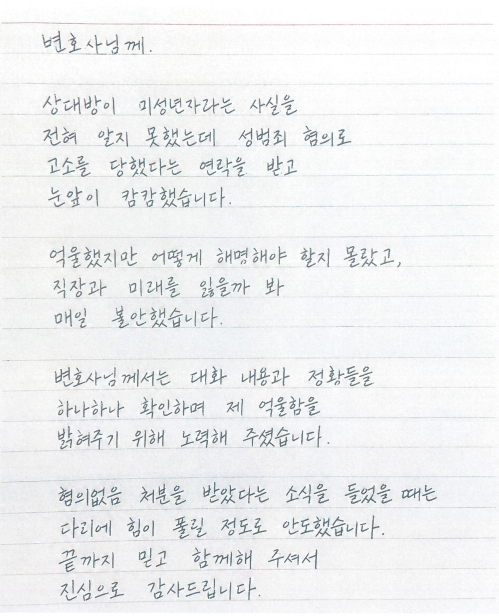 변호사님께.
상대방이 미성년자라는 사실을
전혀 알지 못했는데 성범죄 혐의로
고소를 당했다는 연락을 받고
눈앞이 캄캄했습니다.
억울했지만 어떻게 해명해야 할지 몰랐고,
직장과 미래를 잃을까 봐
매일 불안했습니다.
변호사님께서는 대화 내용과 정황들을
하나하나 확인하며 제 억울함을
밝혀주기 위해 노력해 주셨습니다.
혐의없음 처분을 받았다는 소식을 들었을 때는
다리에 힘이 풀릴 정도로 안도했습니다.
끝까지 믿고 함께해 주셔서
진심으로 감사드립니다.